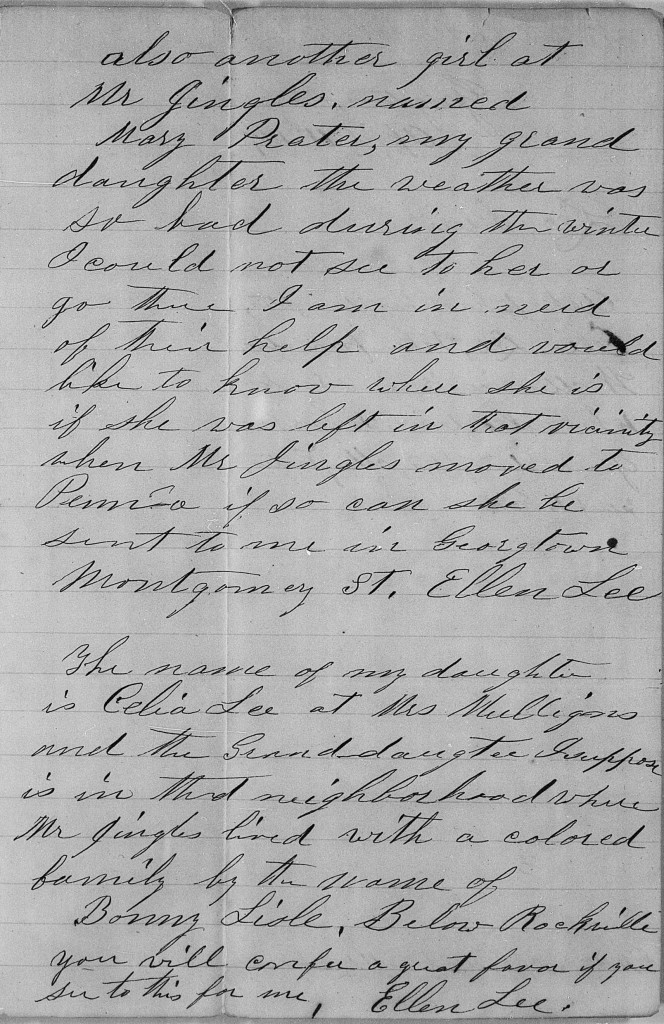 also another girl at
Mr Jingles. named
Mary Prater, my grand
daughter the weather was
so bad during the winter
I could not see to her or
go there I am in need
of their help and would
like to know where she is
if she was left in that vicinity
when Mr Jingles moved to
Penn'a if so can she be
sent to me in Georgtown
Montgomery St. Ellen Lee
The name of my daughter
is Celia Lee at Mrs Mulligns
and the Grand-daugter I suppose
is in that neighborhood where
Mr Jingles lived with a colored
family by the name of
Bonny Lisle, Below Rockville
you will confer a great favor if you
see to this for me, Ellen Lee.